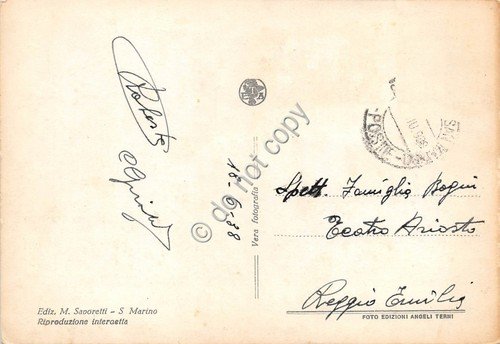 Roberto
18-6-38
Vera fotografia
© do not copy
Spett. Famiglia Bogni
Teatro Ariosto
Reggio Emilia
Ediz. M. Savoretti - S. Marino
Riproduzione interdetta
FOTO EDIZIONI ANGELI TERNI